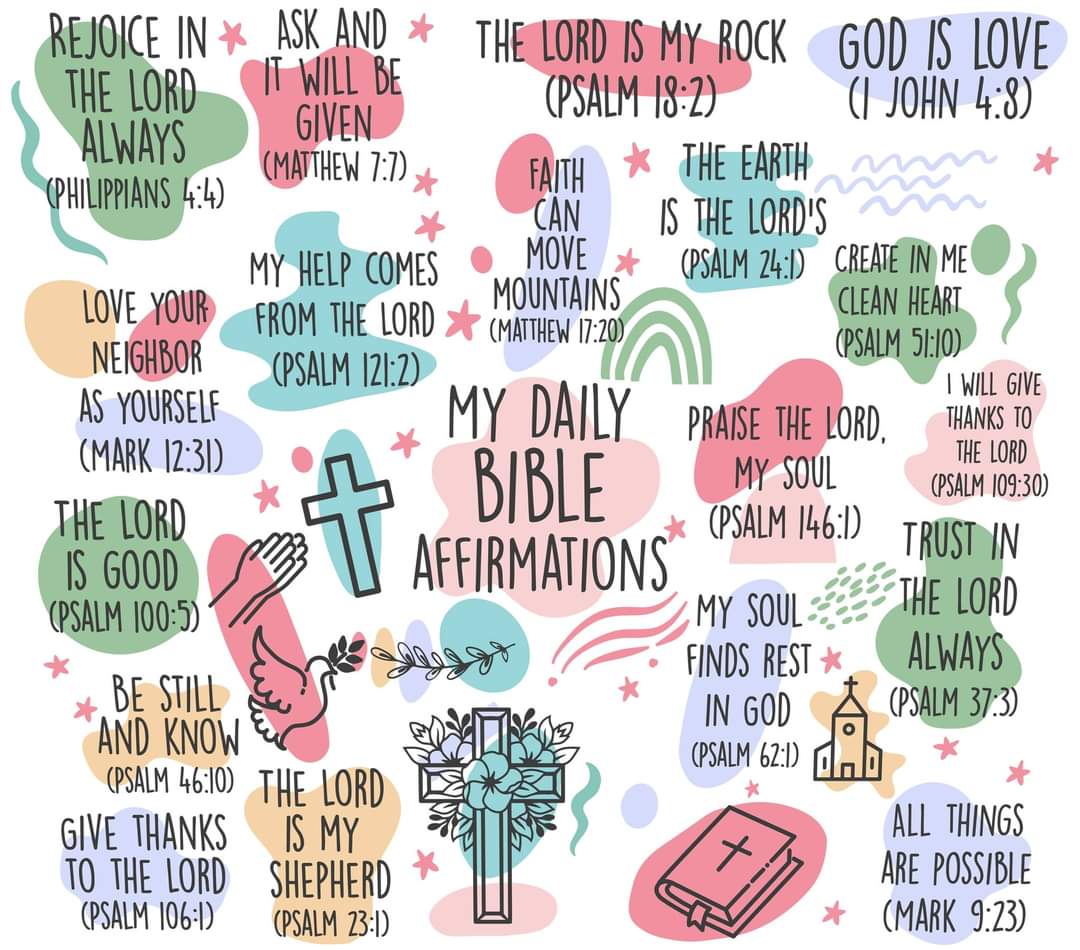 REJOICE IN
THE LORD
ALWAYS
(PHILIPPIANS 4:4)
ASK AND
IT WILL BE
GIVEN
(MATTHEW 7:7)
THE LORD IS MY ROCK
(PSALM 18:2)
GOD IS LOVE
(1 JOHN 4:8)
FAITH
CAN
MOVE
MOUNTAINS
(MATTHEW 17:20)
THE EARTH
IS THE LORD'S
(PSALM 24:1)
CREATE IN ME
CLEAN HEART
(PSALM 51:10)
MY HELP COMES
FROM THE LORD
(PSALM 121:2)
LOVE YOUR
NEIGHBOR
AS YOURSELF
(MARK 12:31)
MY DAILY
BIBLE
AFFIRMATIONS
PRAISE THE LORD,
MY SOUL
(PSALM 146:1)
I WILL GIVE
THANKS TO
THE LORD
(PSALM 109:30)
THE LORD
IS GOOD
(PSALM 100:5)
TRUST IN
THE LORD
ALWAYS
(PSALM 37:3)
MY SOUL
FINDS REST
IN GOD
(PSALM 62:1)
BE STILL
AND KNOW
(PSALM 46:10)
THE LORD
IS MY
SHEPHERD
(PSALM 23:1)
GIVE THANKS
TO THE LORD
(PSALM 106:1)
ALL THINGS
ARE POSSIBLE
(MARK 9:23)